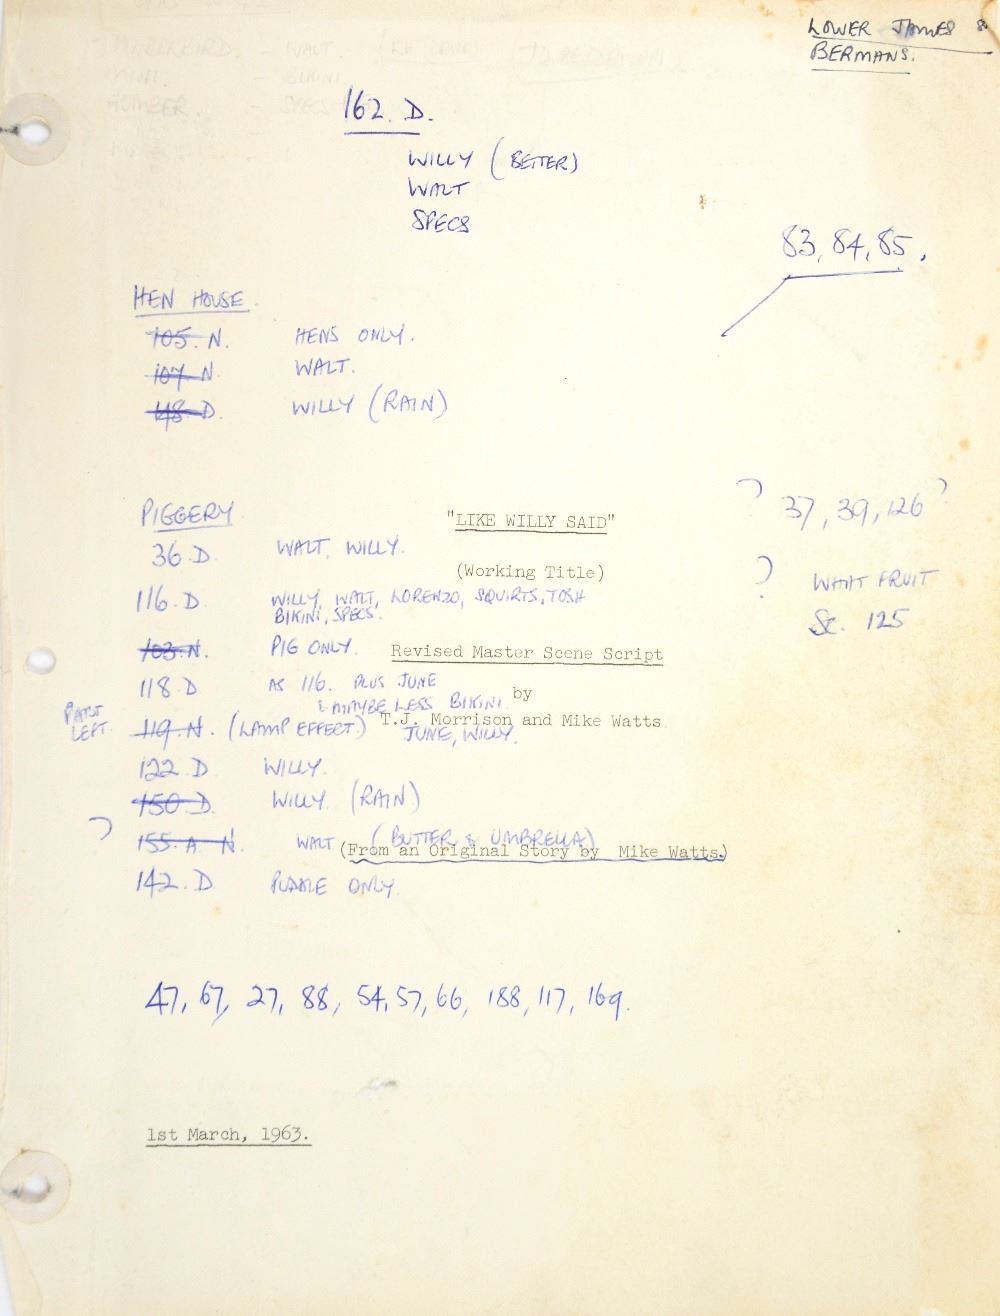 LOWER JAMES &
BERMANS.
162. D.
WILLY (BETTER)
WALT
SPECS
83, 84, 85.
HEN HOUSE.
105. N. HENS ONLY.
107 N. WALT.
148 D. WILLY (RAIN)
PIGGERY.
"LIKE WILLY SAID"
? 37, 39, 126 ?
36. D. WALT, WILLY.
(Working Title)
? WHAT FRUIT
Sc. 125
116. D. WILLY, WALT, LORENZO, SQUIRTS, TOSH
BIKINI, SPECS.
103. N. PIG ONLY.
Revised Master Scene Script
118. D AS 116. PLUS JUNE
& MAYBE LESS BIKINI.
by
T.J. Morrison and Mike Watts.
PART
LEFT.
119. N. (LAMP EFFECT.) JUNE, WILLY.
122. D WILLY.
150. D. WILLY. (RAIN)
? 155. A N. WALT (BUTTER & UMBRELLA)
(From an Original Story by Mike Watts.)
142. D ONLY.
47, 67, 27, 88, 54, 57, 66, 188, 117, 169.
1st March, 1963.